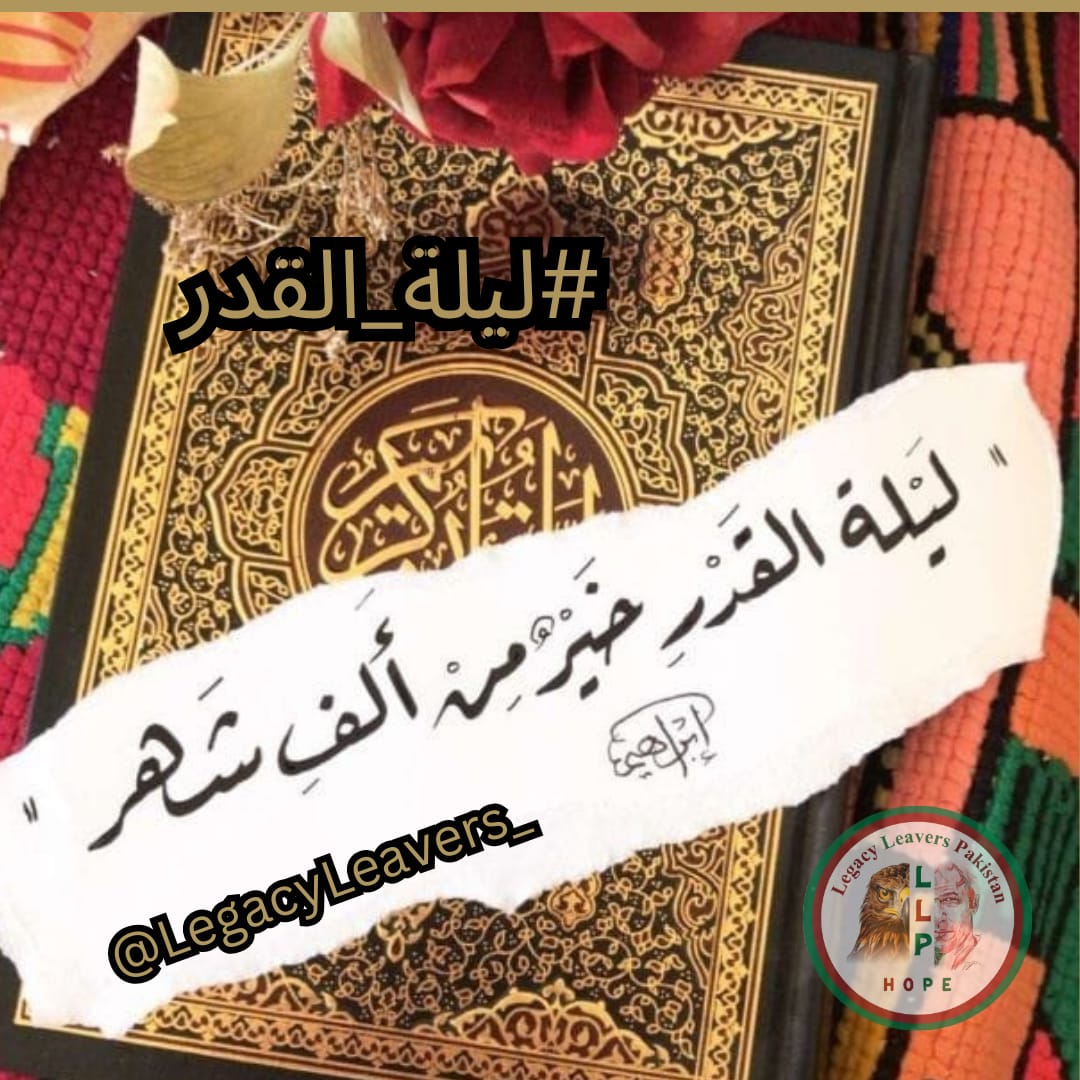 #ليلة_القدر
القرآن الكريم
" لَيْلة القَدْرِ خَيْرٌ مِنْ أَلفِ شَهر "
إبراهيم
@LegacyLeavers_
Legacy Leavers Pakistan
L
L
P
HOPE